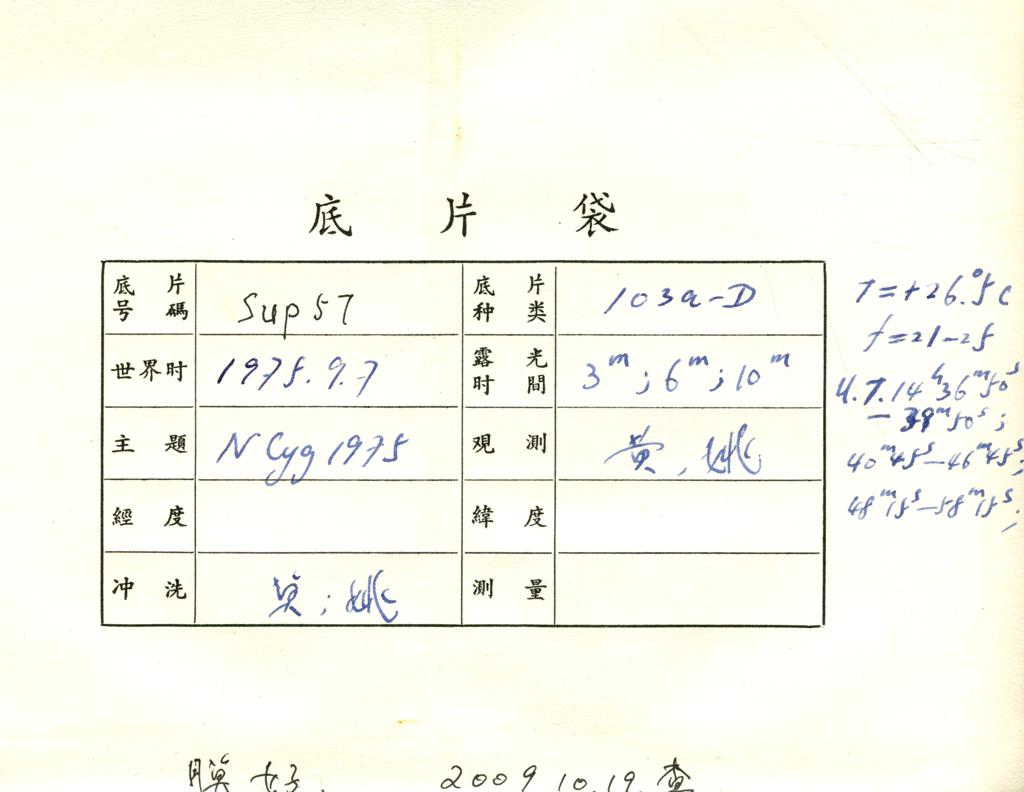 底 片 袋
底片号碼 Sup 57 底片种类 103a-D
世界时 1975.9.7 露光时間 3m; 6m; 10m
主題 N Cyg 1975 观測 黄, 姚
經度 緯度
冲洗 吴; 姚 測量
T=+26.°5C
f=21-25
U.T. 14h36m50s
-39m50s;
40m45s-46m45s;
48m15s-58m15s;
膜好. 2009.10.19.查